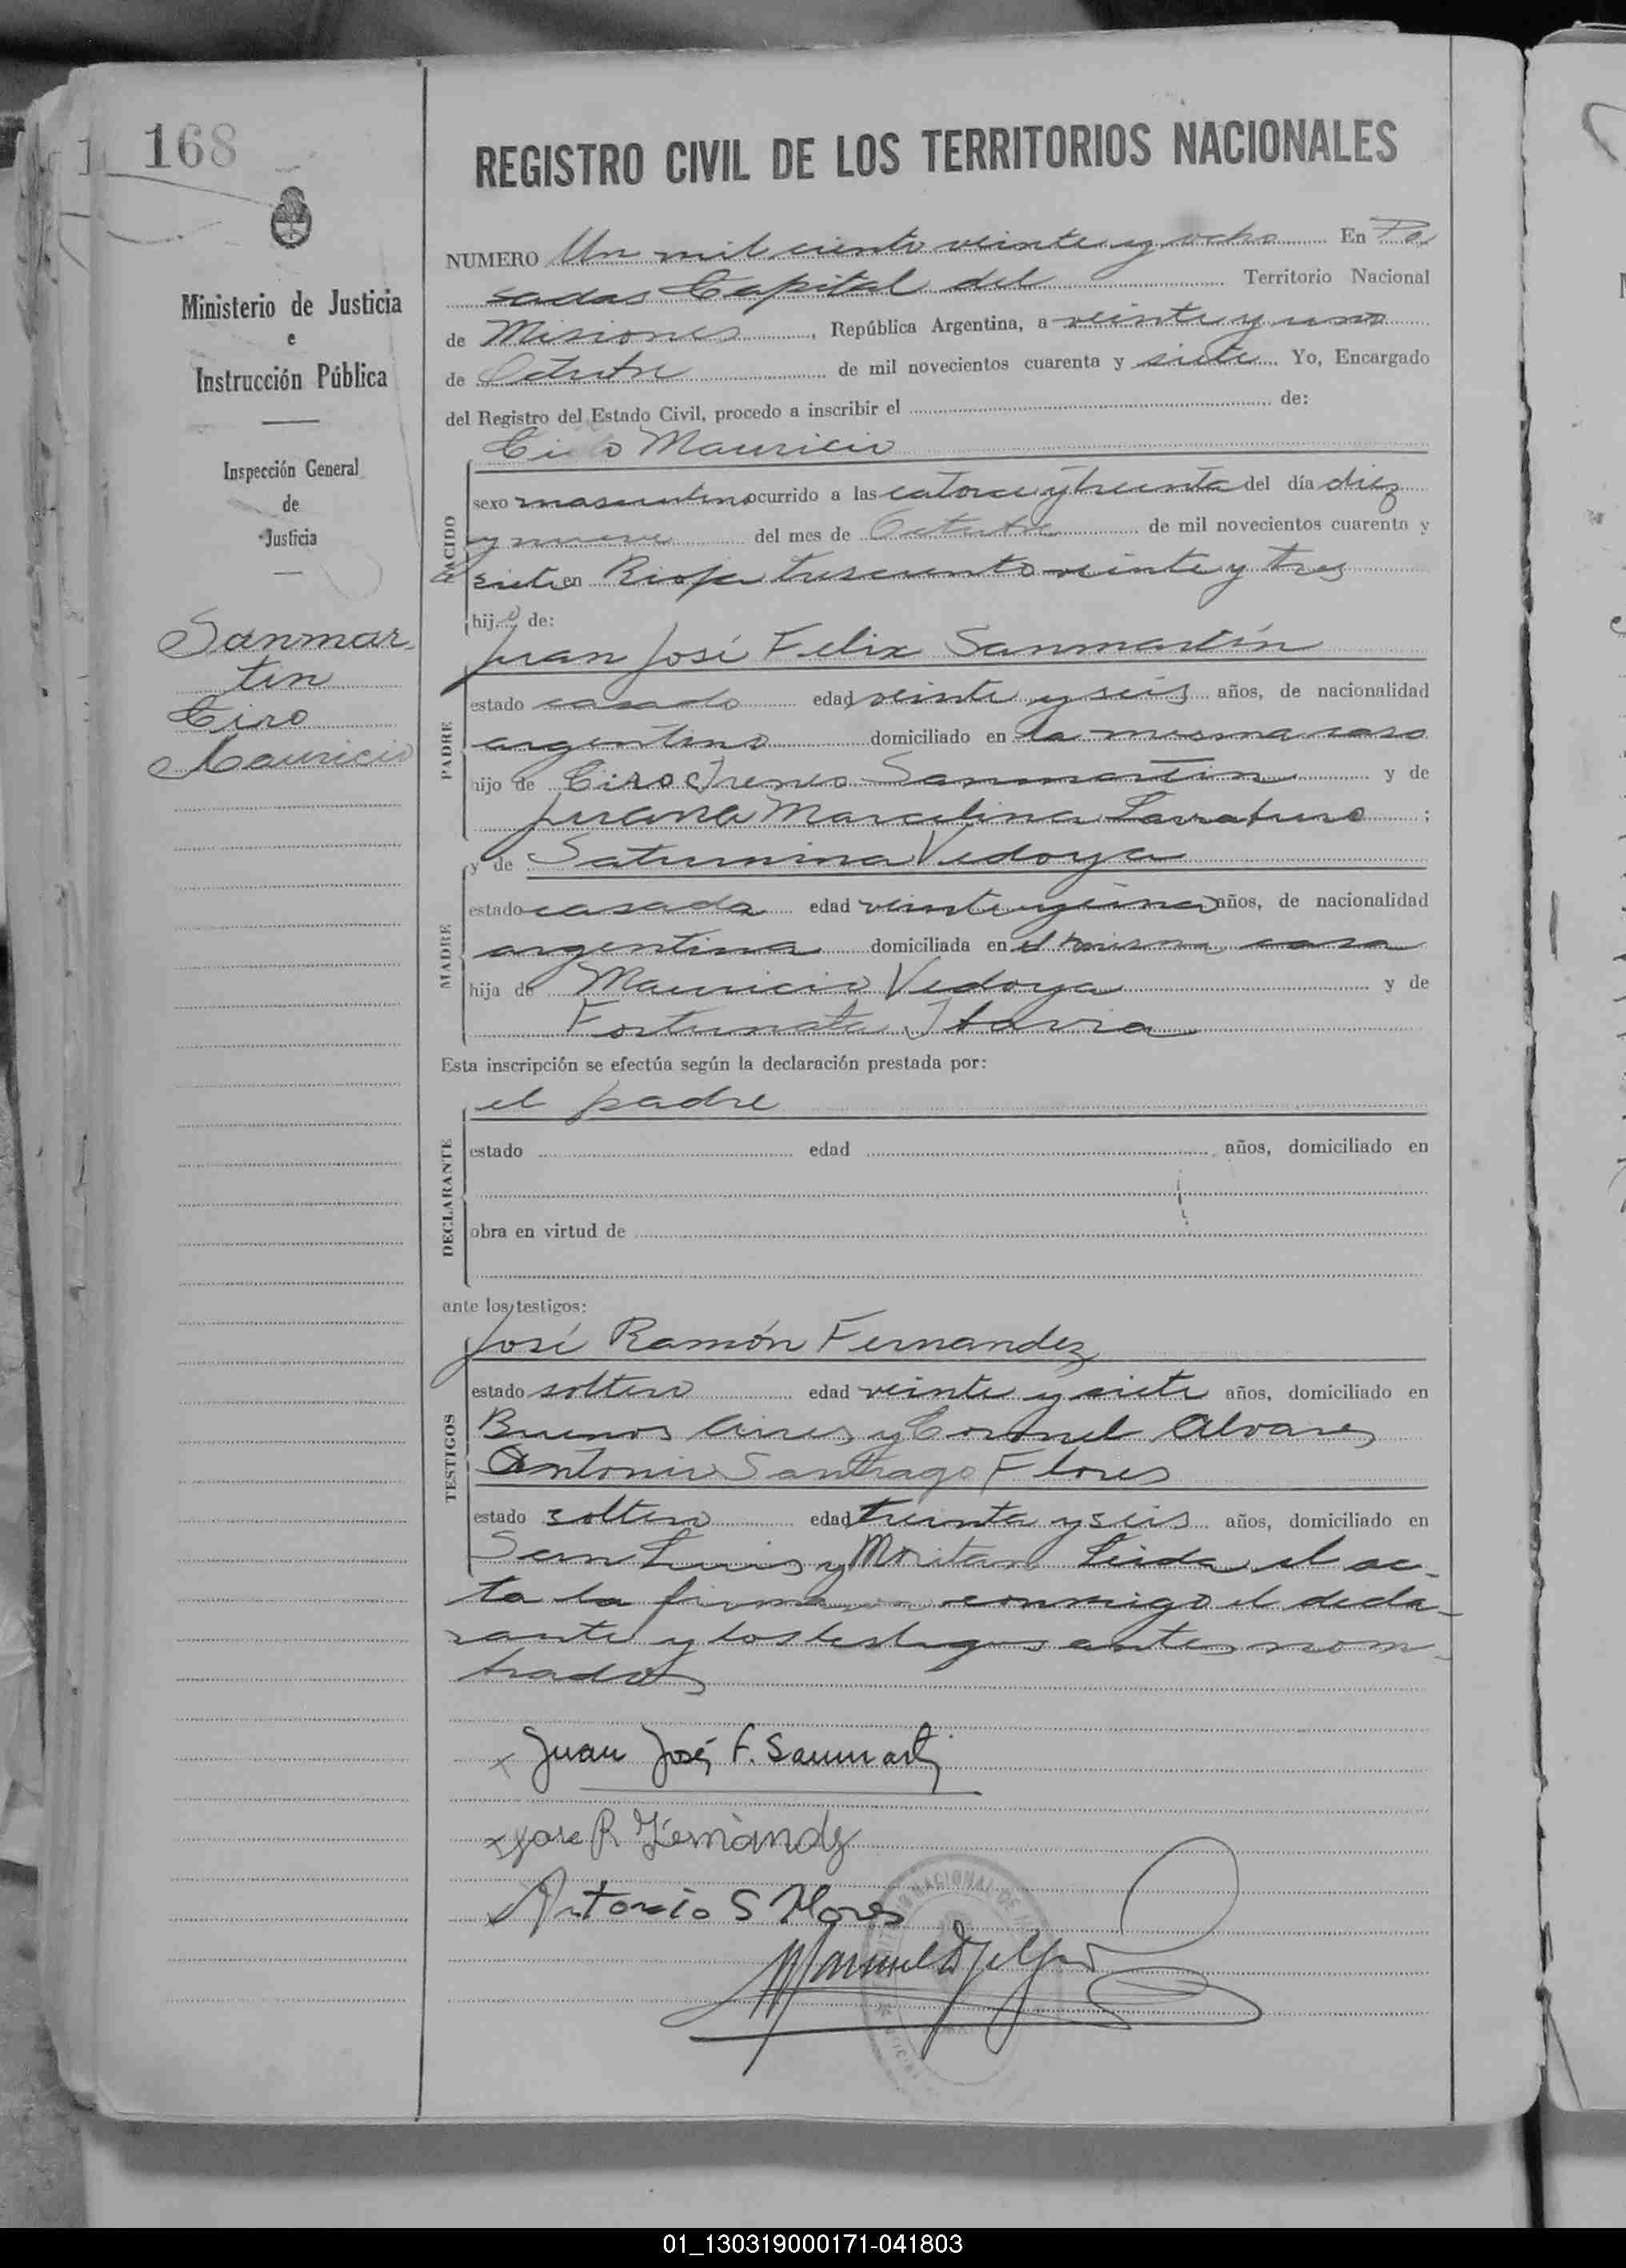 168
REGISTRO CIVIL DE LOS TERRITORIOS NACIONALES
Ministerio de Justicia
e
Instrucción Pública
Inspección General
de
Justicia
Sanmar
tin
Ciro
Mauricio
NUMERO Un mil ciento veinte y ocho En Po
sadas Capital del Territorio Nacional
de Misiones, República Argentina, a veinte y uno
de Octubre de mil novecientos cuarenta y siete Yo, Encargado
del Registro del Estado Civil, procedo a inscribir el de:
Ciro Mauricio
NACIDO
sexo masculino ocurrido a las catorce y treinta del día diez
y nueve del mes de Octubre de mil novecientos cuarenta y
siete en Rioja trescientos veinte y tres
hijo de:
Juan José Felix Sanmartín
PADRE
estado casado edad veinte y seis años, de nacionalidad
argentino domiciliado en la misma casa
hijo de Ciro Ireneo Sanmartin y de
Juana Marcelina Larraturo:
y de Saturnina Vedoya
MADRE
estado casada edad años, de nacionalidad
argentina domiciliada en misma casa
hija de Mauricio Vedoya y de
Fortunata Ibarra
Esta inscripción se efectúa según la declaración prestada por:
el padre
DECLARANTE
estado edad años, domiciliado en
obra en virtud de
ante los testigos:
José Ramón Fernandez
TESTIGOS
estado soltero edad veinte y siete años, domiciliado en
Buenos Aires y Coronel Alvarez
Antonio Santiago Flores
estado soltero edad treinta y seis años, domiciliado en
San Luis y Moritan Leida el ac-
ta la firman conmigo el decla-
rante y los testigos antes nom-
brados
Juan José F. Sanmartin
Jose R Fernandez
Antonio S Flores
01_130319000171-041803